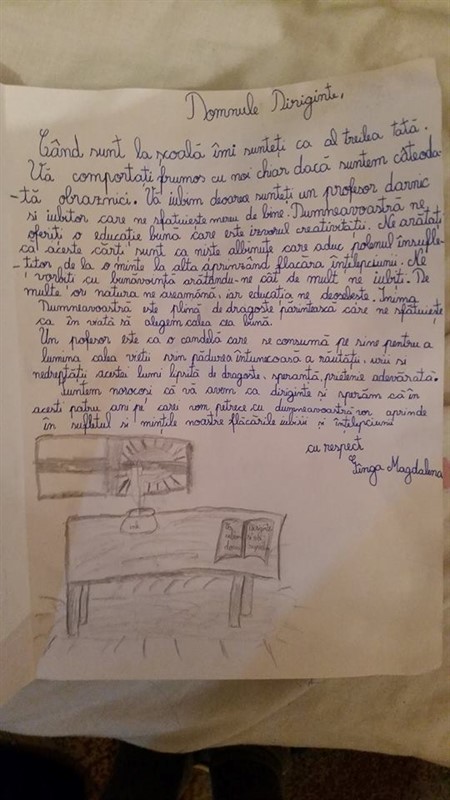 Domnule Diriginte,
Când sunt la școală îmi sunteți ca al treilea tată.
Vă comportati frumos cu noi chiar dacă suntem câteoda-
-tă obraznici. Vă iubim deoarea sunteți un profesor darnic
si iubitor care ne sfatuiește mereu de bine. Dumneavoastră ne
oferiți o educație bună care este izvorul creativității. Ne arătați
că aceste cărți sunt ca niște albinuțe care aduc polenul însufle-
-titor de la o minte la alta aprinzând flacăra înțelepciunii. Ne
vorbiti cu bunăvoință arătându-ne cât de mult ne iubiți. De
multe ori natura ne aseamănă, iar educatia ne deosebeste. Inima
Dumneavoastră este plină de dragoste părintească care ne sfătuiește
ca în viată să alegem calea cea bună.
Un pofesor este ca o candelă care se consumă pe sine pentru a
lumina calea vietii prin pădurea întunecoară a răutății, urii si
nedreptății acestei lumi lipsită de dragoste, speranță, prietenie adevărată.
Suntem norocosi că vă avem ca diriginte si sperăm că în
acesti patru ani pe care vom petrece cu dumneavoastră vor aprinde
în sufletul si mintile noastre flăcările iubirii si înțelepciunii
cu respect
Magdalena